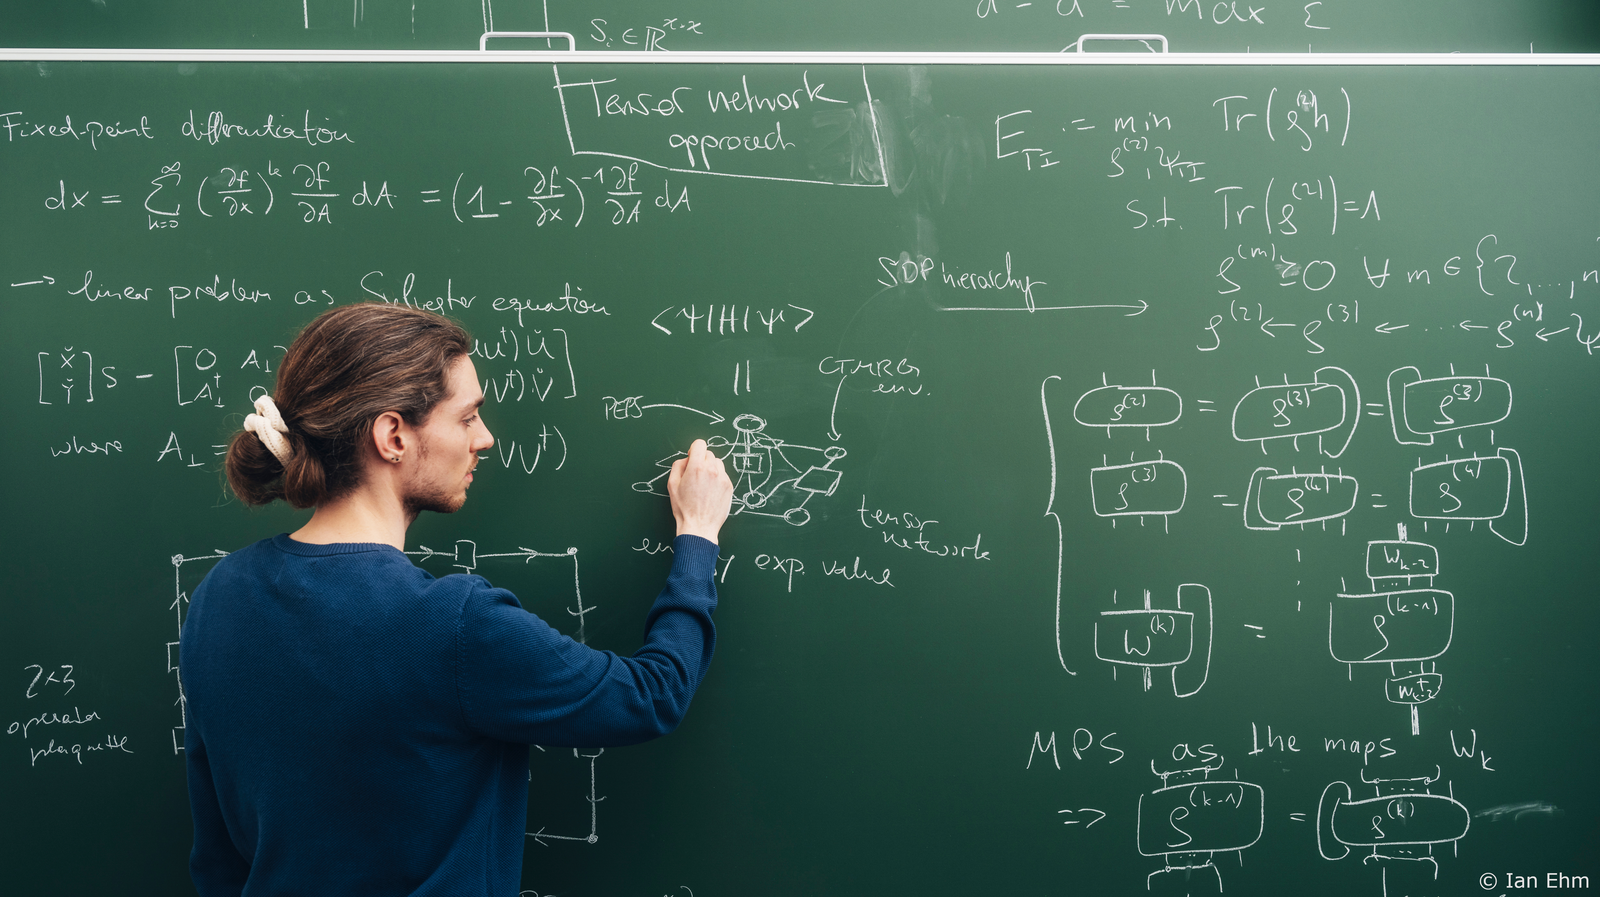 S_i ∈ ℝ^{x·x}
Tensor network
approach
Fixed-point differentiation
dx = ∑_{k=0}^{∞} (∂f/∂x)^k ∂f/∂A dA = (1 - ∂f/∂x)^{-1} ∂f/∂A dA
→ linear problem as Sylvester equation
[X̌ Y̌] S - [0 A⊥
A⊥† 0
where A⊥ =
VV†)
<Ψ|H|Ψ>
||
PEPS
CTMRG
env.
H
tensor
network
exp. value
2×3
operator
plaquette
SDP hierarchy
E_{TI} := min Tr(ρ^{(2)}h)
ρ^{(2)}, ψ_{TI}
s.t. Tr(ρ^{(2)}) = 1
ρ^{(m)} ≥ 0 ∀ m ∈ {2,...,n
ρ^{(2)} ← ρ^{(3)} ← ... ← ρ^{(n)} ← ψ
ρ^{(2)} = ρ^{(3)} = ρ^{(3)}
ρ^{(3)} = ρ^{(4)} = ρ^{(4)}
⋮
W_{k-2}
W^{(k)} = ρ^{(k-1)}
W†_{k-2}
MPS as the maps W_k
⇒ ρ^{(k-1)} = ρ^{(k)}
© Ian Ehm